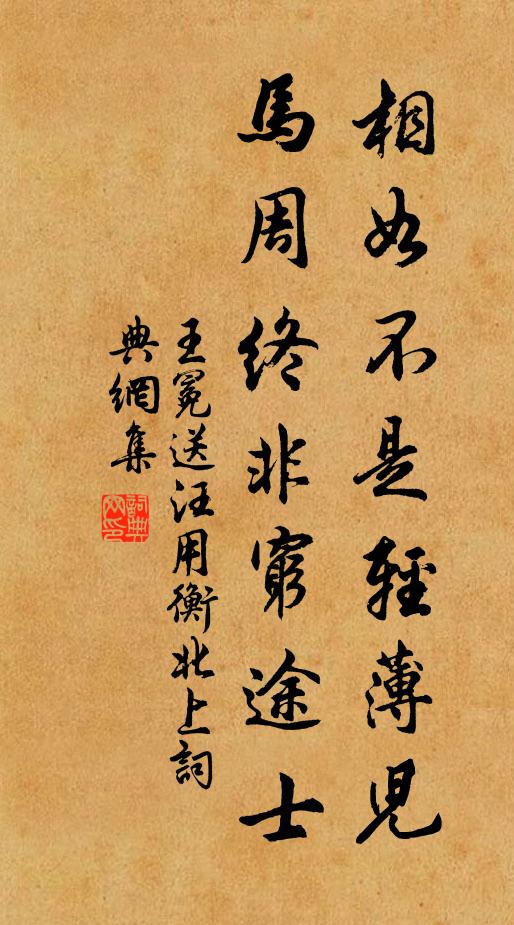 相如不是輕薄兒
馬周終非窮途士
王冕送汪用衡北上詞
典網集
詞典
网印